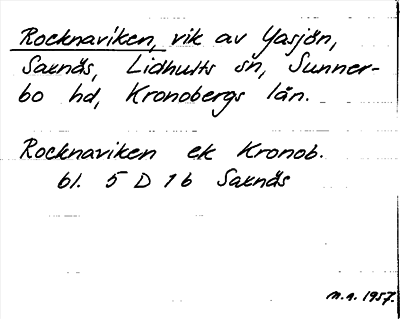 Rocknaviken, vik av Yasjön,
Saxnäs, Lidhults sn, Sunner-
bo hd, Kronobergs län.
Rocknaviken ek Kronob.
bl. 5 D 1 b Saxnäs
n.n. 1957.